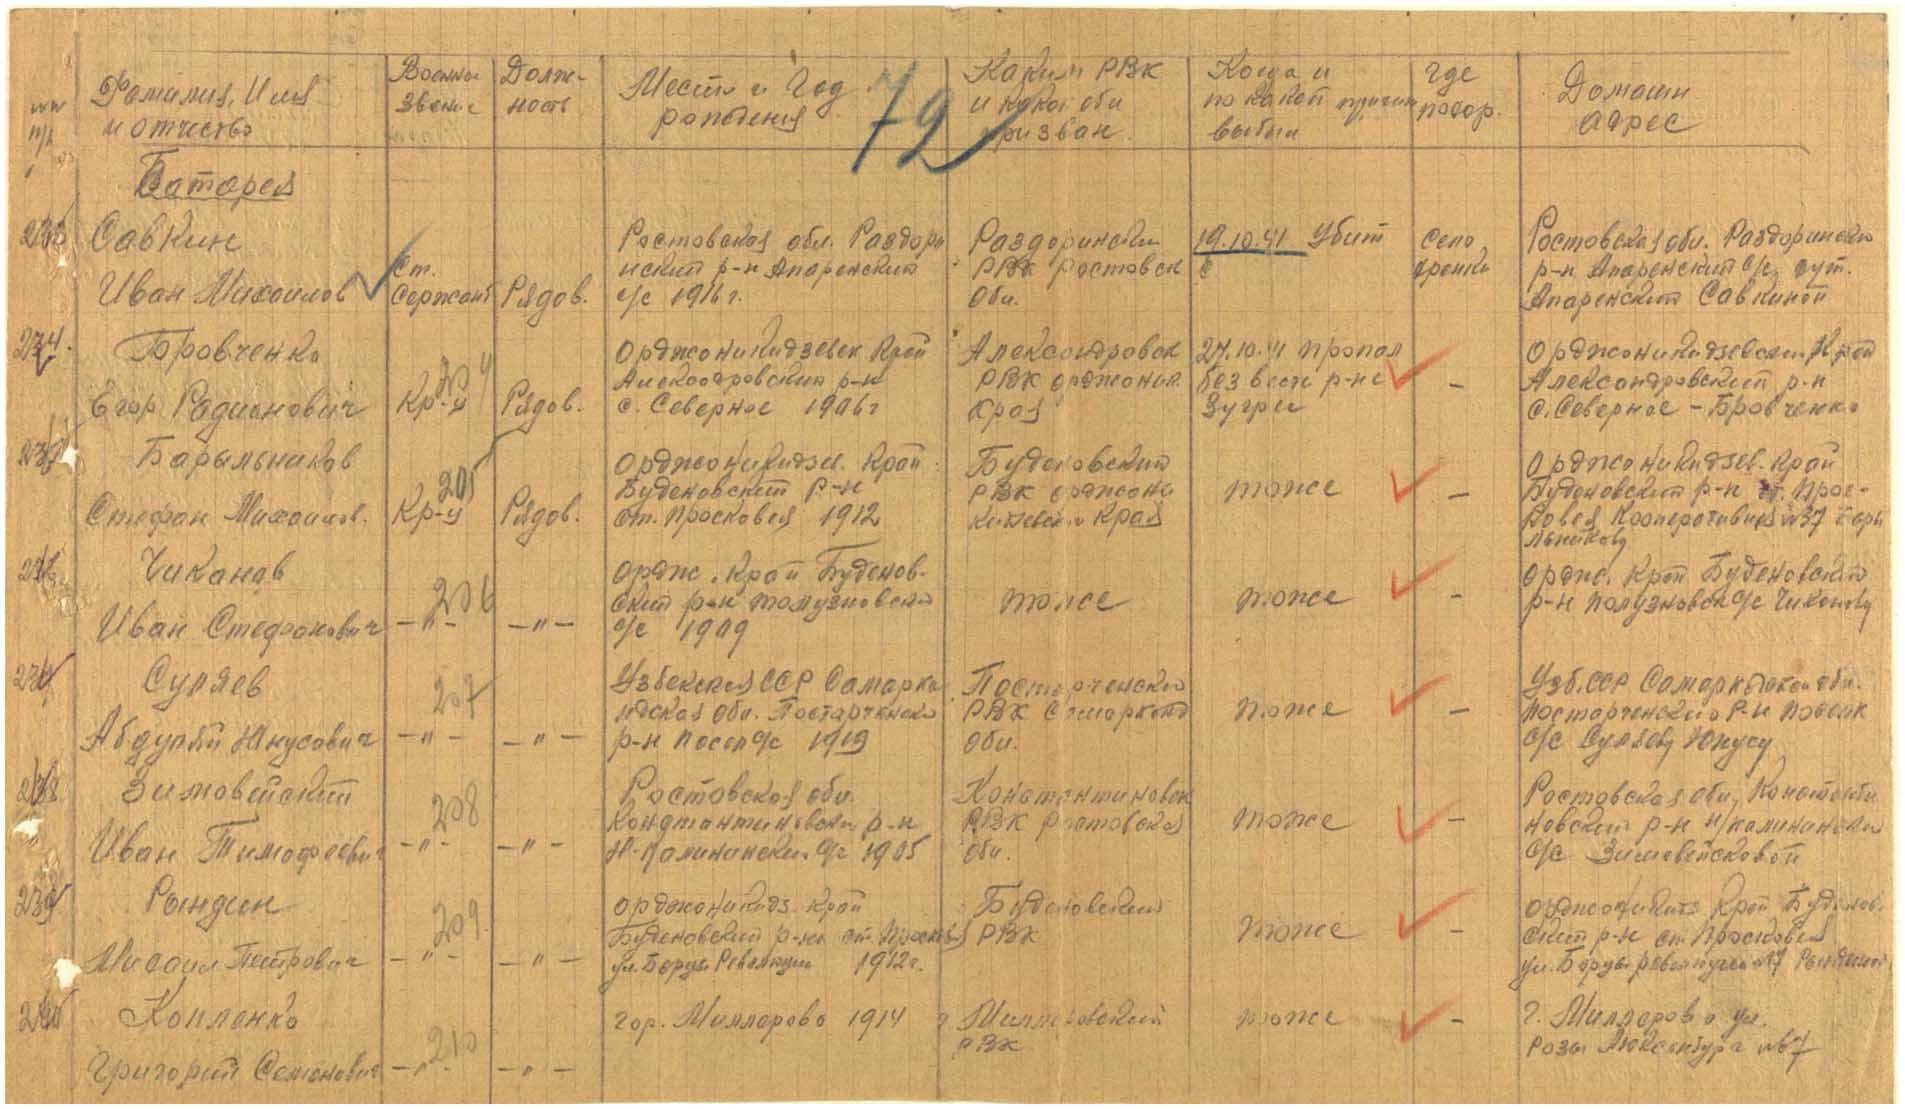 Фамилия, Имя и отчество
Военное звание
Долж-ность
Место и Год рождения
72
Каким РВК и какой обл призван
Когда и по какой причин выбыл
где похор.
Домашн адрес
Батарея
233
Савкин
Иван Михаилов
Ст. Сержант
Рядов.
Ростовская обл. Раздори
нский р-н Апаренский
с/с 1916 г.
Раздоринский
РВК Ростовск
Обл.
19.10.41 Убит
село
Ростовская обл. Раздоринский
р-н Апаренский с/с хут.
Апаренский Савкиной
234.
Бровченко
Егор Родионович
204
Кр-ц
Рядов.
Орджоникидзевск Край
Александровский р-н
с. Северное 1906 г
Александровск
РВК орджоник.
Края
27.10.41 пропал
без вести р-не
Зугрес
–
Орджоникидзевский Край
Александровский р-н
с. Северное – Бровченко
235
Барыльников
Стефан Михаилов.
205
Кр-ц
Рядов.
Орджоникидзев. Край
Буденовский р-н
ст. Просковея 1912
Буденовский
РВК орджони
кидзевского Края
тоже
–
Орджоникидзев. Край
Буденовский р-н ст. Прос-
ковея Кооперативная №37 Бары
льникову
236
Чиканов
Иван Стефанович
206
–"–
–"–
Ордж. Край Буденов-
ский р-н
с/с 1909
тоже
тоже
–
Ордж. Край Буденовский
р-н с/с Чиканову
237
Суляев
Абдулби Юнусович
207
–"–
–"–
Узбекская ССР Самарка
ндская обл. Постарченско
р-н Посел с/с 1919
Постарченский
РВК Самарканд
Обл.
тоже
–
Узб. ССР Самаркандская обл.
Постарченского р-н
с/с Суляеву Юнусу
238
Зимовейский
Иван Тимофеевич
208
–"–
–"–
Ростовская обл.
Константиновский р-н
Н-Калининский с/с 1905
Константиновск
РВК Ростовская
обл.
тоже
–
Ростовская обл, Константи
новский р-н Н/Калининский
с/с Зимовейсковой
239
Рындин
Михаил Петрович
209
–"–
–"–
Орджоникидз. край
Буденовский р-н ст. Просковея
ул. Борцы Революции 1912 г.
Буденовский
РВК
тоже
–
Орджоникидз Край Буденов.
ский р-н ст. Просковея
ул. Борцы революции №7 Рындиной
240
Копленко
Григорий Семенович
210
–"–
–"–
гор. Миллерово 1914
Миллеровский
РВК
тоже
–
г. Миллерово ул.
Розы Люксенбург №67